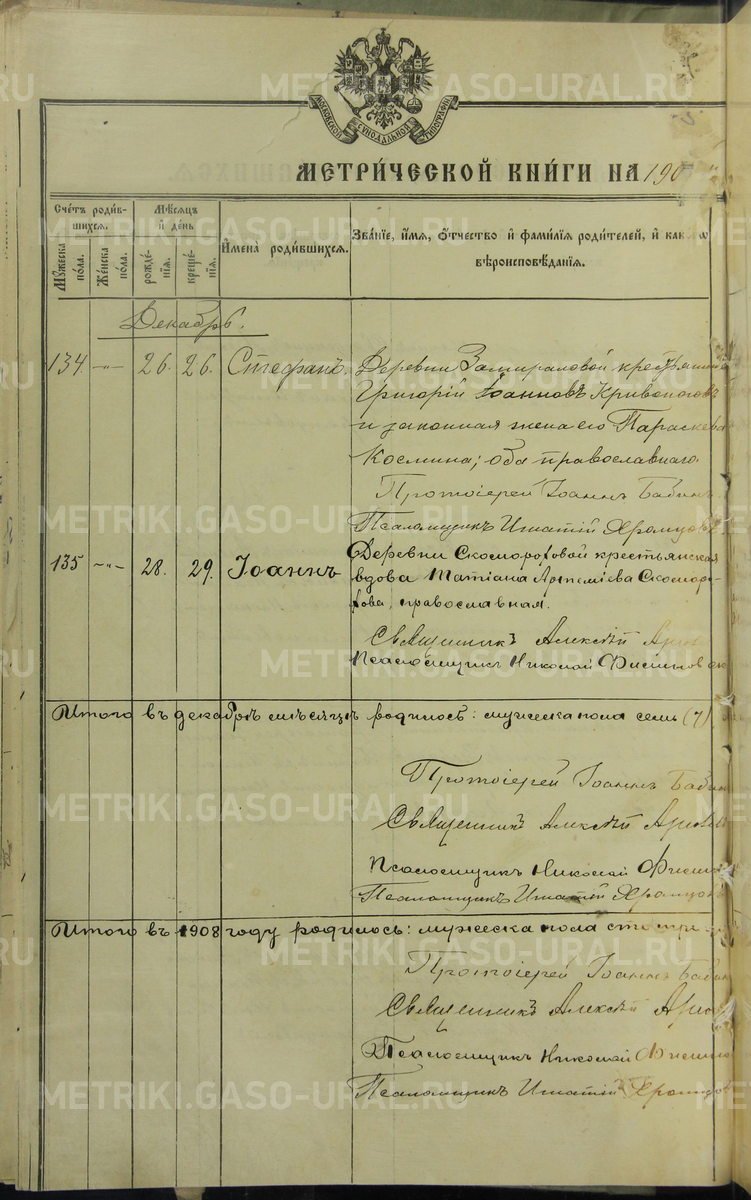 METRIKI.GASO-URAL.RU
МОСКОВСКОЙ СѴНОДАЛЬНОЙ ТИПОГРАФІИ
МЕТРИ́ЧЕСКОЙ КНИ́ГИ НА 190
Сче́тъ роди́в-
шихся.
Мѣ́сяцъ
и҆ де́нь
Мꙋ́жеска по́ла.
Же́нска по́ла.
рожде́-
нїѧ.
креще́-
нїѧ.
И҆мена̀ роди́вшихсѧ.
Зва́нїе, и҆́мѧ, ѻ҆́тчество и҆ фами́лїѧ роди́телей, и҆ как
вѣроисповѣ́данїѧ.
Декабрь.
134. -"- 26. 26. Стефанъ. Деревни Замираловой крестьянин
Григорій Іоанновъ Кривоноговъ
и законная жена его Параскева
Космина; оба православнаго.
Протоіерей Іоаннъ Бабин
Псаломщикъ Игнатій Храмцовъ
135 -"- 28. 29. Іоаннъ Деревни Скомороховой крестьянская
вдова Татіана Артеміева Скоморо-
хова, православная.
Священникъ Алексѣй
Псаломщикъ Николай
Итого въ декабрѣ мѣсяцѣ родилось: мужеска пола семь (7),
Протоіерей Іоаннъ Бабин
Священникъ Алексѣй
Псаломщикъ Николай
Псаломщикъ Игнатій Храмцовъ
Итого въ 1908 году родилось: мужеска пола сто три
Протоіерей Іоаннъ Бабин
Священникъ Алексѣй
Псаломщикъ Николай
Псаломщикъ Игнатій Храмцов